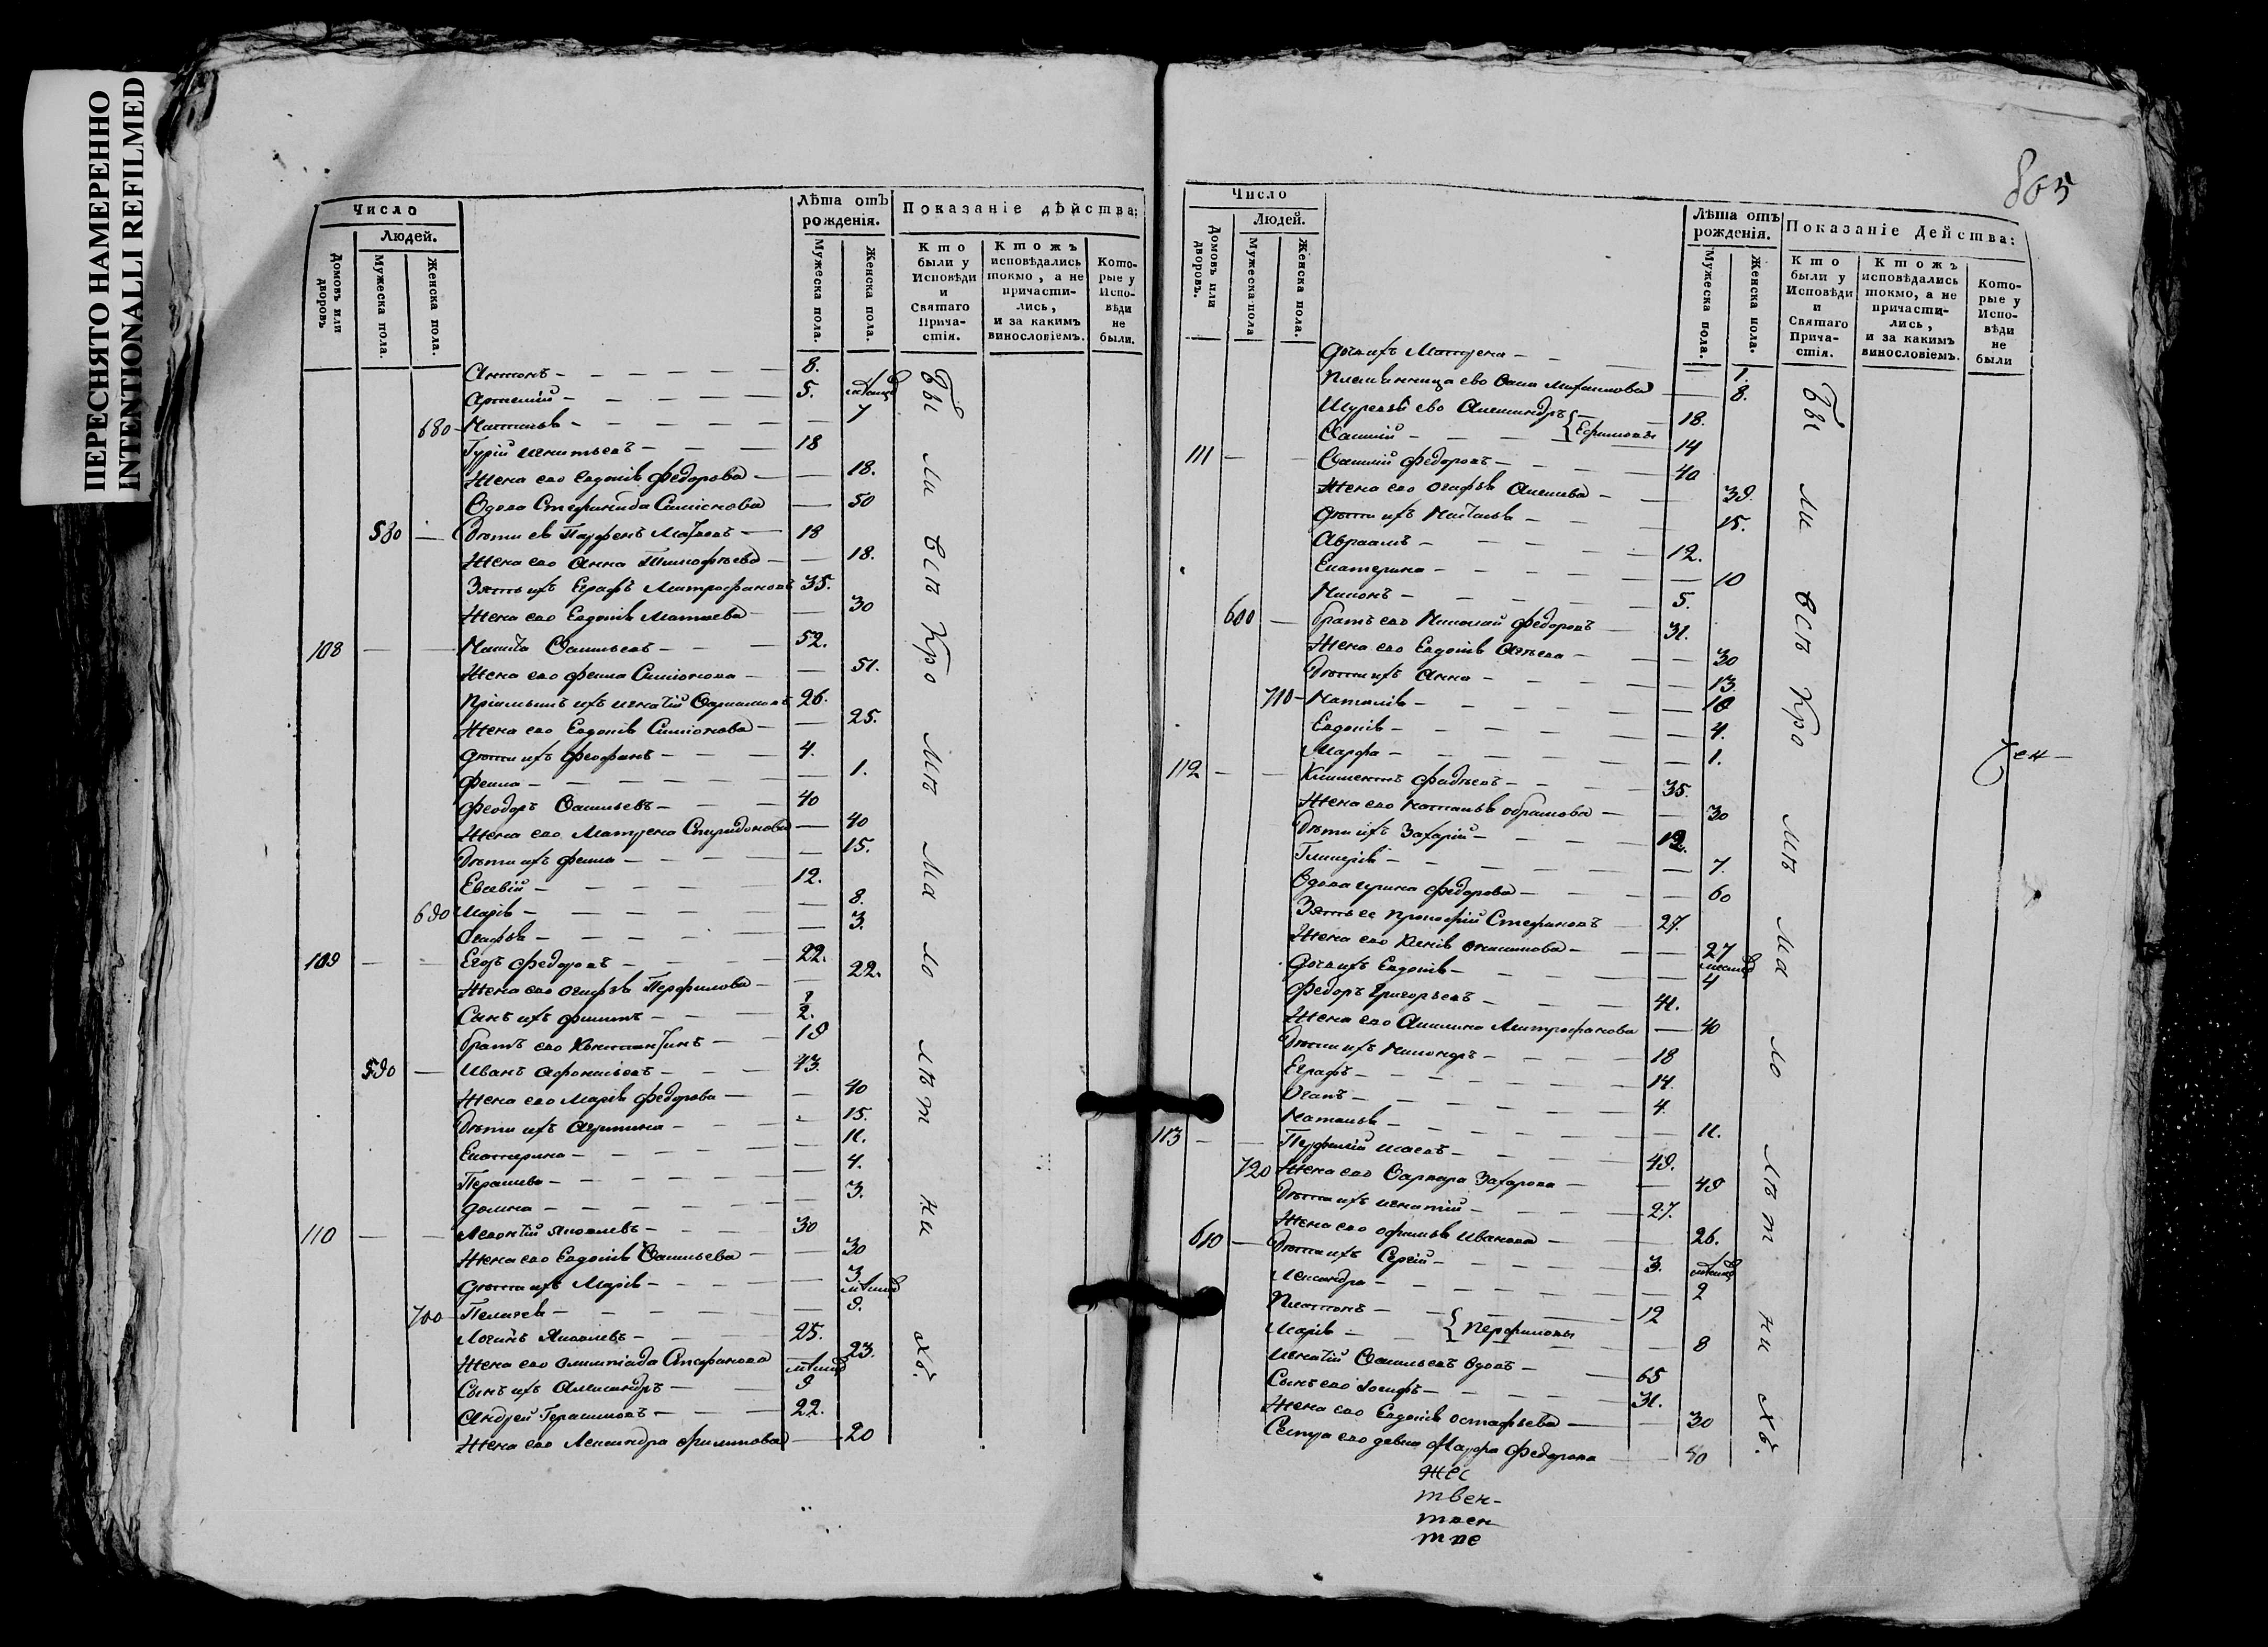 ПЕРЕСНЯТО НАМЕРЕННО
INTENTIONALLI REFILMED
805
Число
Людей.
Домовъ или дворовъ
Мужеска пола.
Женска пола.
Лѣта отъ рожденія.
Мужеска пола.
Женска пола.
Показаніе дѣйства:
Кто были у Исповѣди и Святаго Причастія.
Ктожъ исповѣдались токмо, а не причастились, и за какимъ винословіемъ.
Которые у Исповѣди не были.
Антонъ 8.
Артемій 5.
680 Наталья 7
Гурій Игнатьевъ 18
Жена ево Евдокія Федорова 18.
Вдова Стефанида Симіонова 50
580 Дѣти ея Парфенъ 18
Жена ево Анна Тимофѣева 18.
Зять ихъ Еграфъ Митрофановъ 35.
Жена ево Евдокія Матвева 30
108 Никита Васильевъ 52.
Жена ево Фекла Симіонова 51.
Пріемышъ ихъ Игнатій 26.
Жена ево Евдокія Симіонова 25.
Дѣти ихъ Феофанъ 4.
Фекла 1.
Феодоръ Васильевъ 40
Жена ево Матрена Спиридонова 40
Дѣти ихъ Фекла 15.
Евсевій 12.
690 Марія 8.
Агафья 3.
109 Егоръ Федоровъ 22.
Жена ево Агафья Перфилова 22.
Сынъ ихъ Филипъ 2.
Братъ ево Константинъ 19
590 Иванъ Афонасьевъ 43.
Жена ево Марія Федорова 40
Дѣти ихъ Агрипина 15.
Екатерина 11.
Парасковья 4.
Домна 3.
110 Леонтій Яковлевъ 30
Жена ево Евдокія Васильева 30
Дѣти ихъ Марія 3
700 Пелагея 9.
Логинъ Яковлевъ 25.
Жена ево Олимпіада Стефанова 23.
Сынъ ихъ Александръ 9
Андрей Герасимовъ 22.
Жена ево Александра Филипова 20
Бы
ли
всѣ
Кро
мѣ
ма
ло
лѣт
ни
хъ.
Число
Людей.
Домовъ или дворовъ.
Мужеска пола
Женска пола.
Лѣта отъ рожденія.
Мужеска пола.
Женска пола.
Показаніе Действа:
Кто были у Исповѣди и Святаго Причастія.
Ктожъ исповѣдались токмо, а не причастились, и за какимъ винословіемъ.
Которые у Исповѣди не были
Дочь ихъ Матрена 1.
Племянница ево 8.
Шуревья ево Александръ 18.
Василій Ефимовы 14
111 Василій Федоровъ 40
Жена ево Агафья Алексева 39.
Дѣти ихъ Наталья 15.
Авраамъ 12.
Екатерина 10
Никонъ 5.
600 Братъ ево Николай Федоровъ 31.
Жена ево Евдокія 30
Дѣти ихъ Анна 13
710 Наталія 10
Евдокія 4.
Марфа 1.
112 Климентъ Фадѣевъ 35.
Жена ево Наталья Абрамова 30
Дѣти ихъ Захарій 12.
Гликерія 7.
Вдова Ирина Федорова 60
Зять ее Прокофій Стефановъ 27.
Жена ево Ксенія Анисимова 27
Дочь ихъ Евдокія 4
Федоръ Григорьевъ 41.
Жена ево Акилина Митрофанова 40
Дѣти ихъ Никаноръ 18
Еграфъ 14.
Осипъ 4.
Наталья 11.
113 Перфилій 49.
720 Жена ево Варвара Захарова 49
Дѣти ихъ Игнатій 27.
Жена ево Офимья Иванова 26.
610 Дѣти ихъ Сергій 3.
Александра 2
Платонъ 12
Марія Перфиловы 8
Игнатій Васильевъ вдовъ 65
Сынъ ево Іосифъ 31.
Жена ево Евдокія Остафьева 30
Сестра ево девка Марфа Федорова 40
Бы
ли
всѣ
Кро
мѣ
ма
ло
лѣт
ни
хъ.
жес
твен-
твен
тве